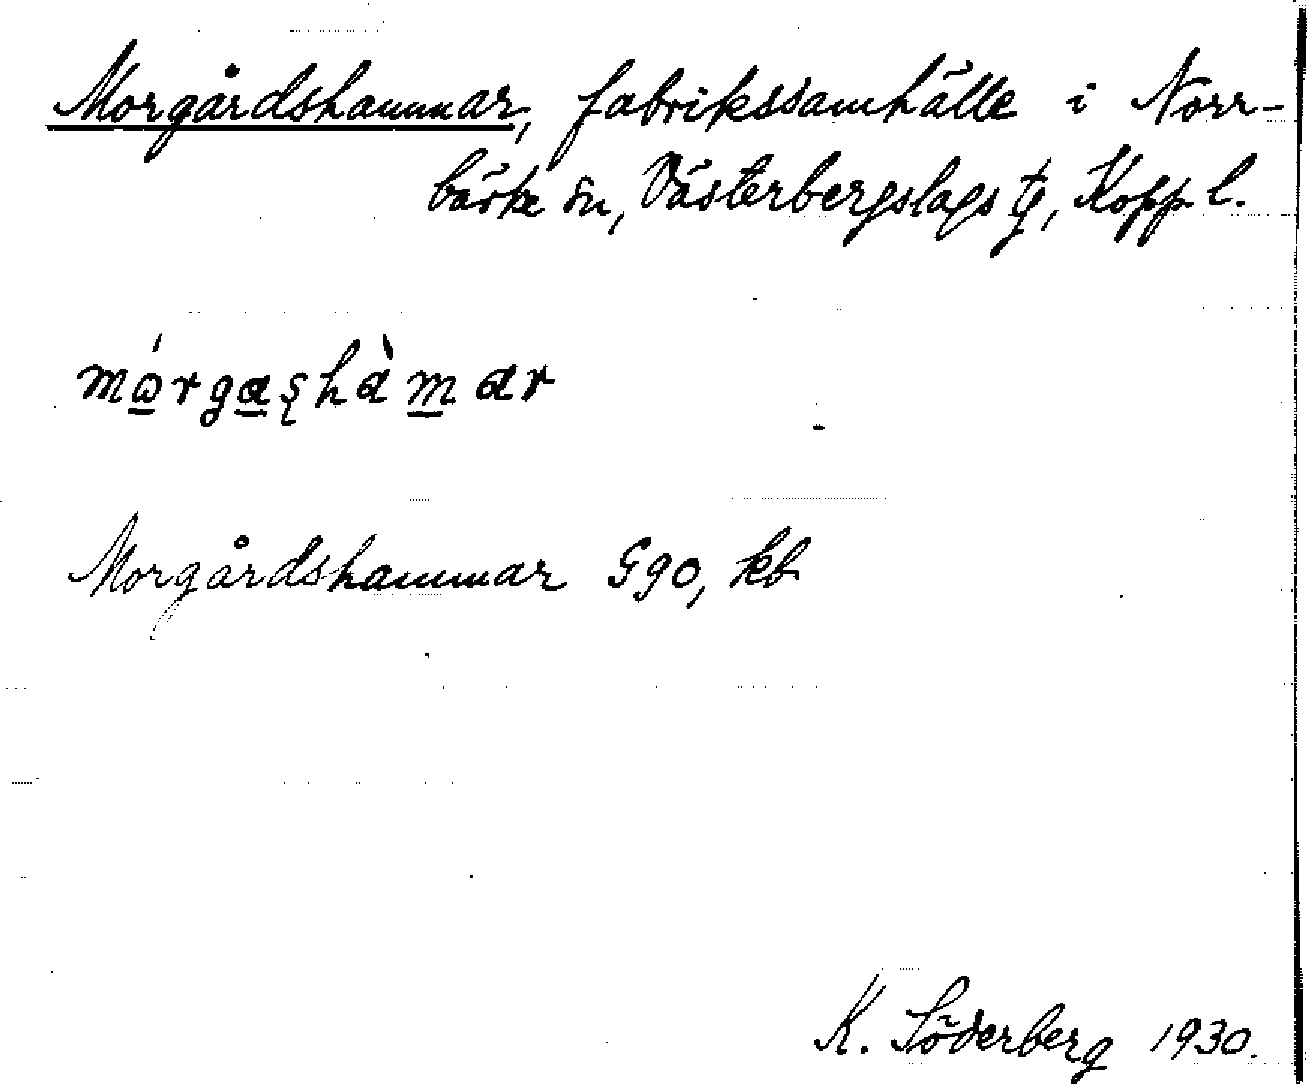 Morgårdshammar, fabrikssamhälle i Norr-
bärke sn, Västerbergslags tg, Kopp l.
mó̲rga̲ʂhàm̲ar
Morgårdshammar G90, kb
K. Söderberg 1930.